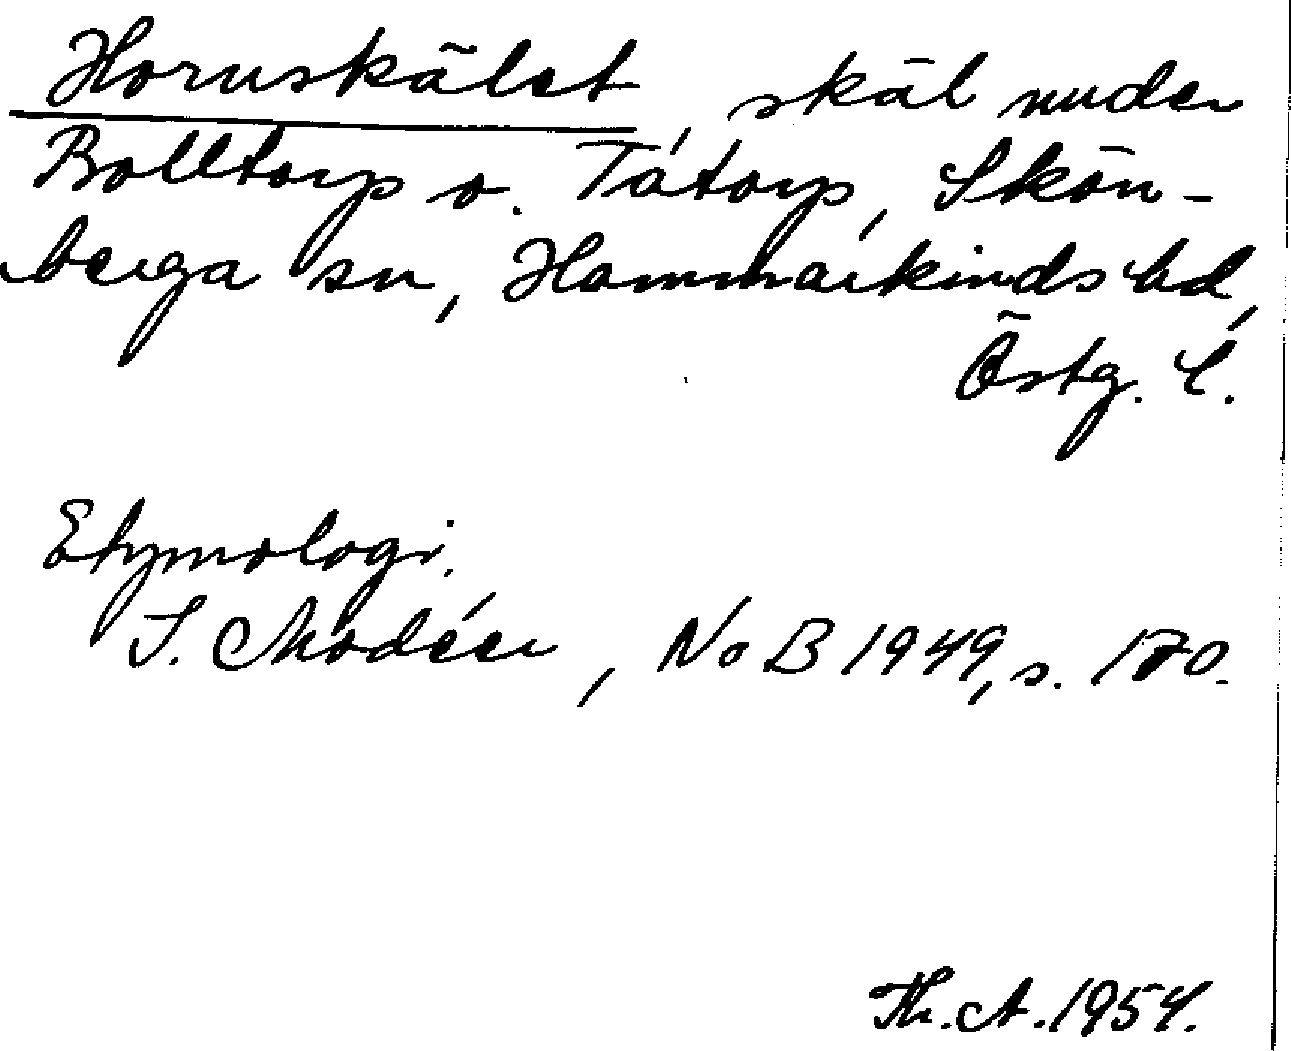 Hornskälet, skäl under
Bolltorp o. Tåtorp, Skön-
berga sn, Hammarkinds hd,
Östg. l.
Etymologi.
I. Modéer, NoB 1949, s. 170.
Th. A. 1954.